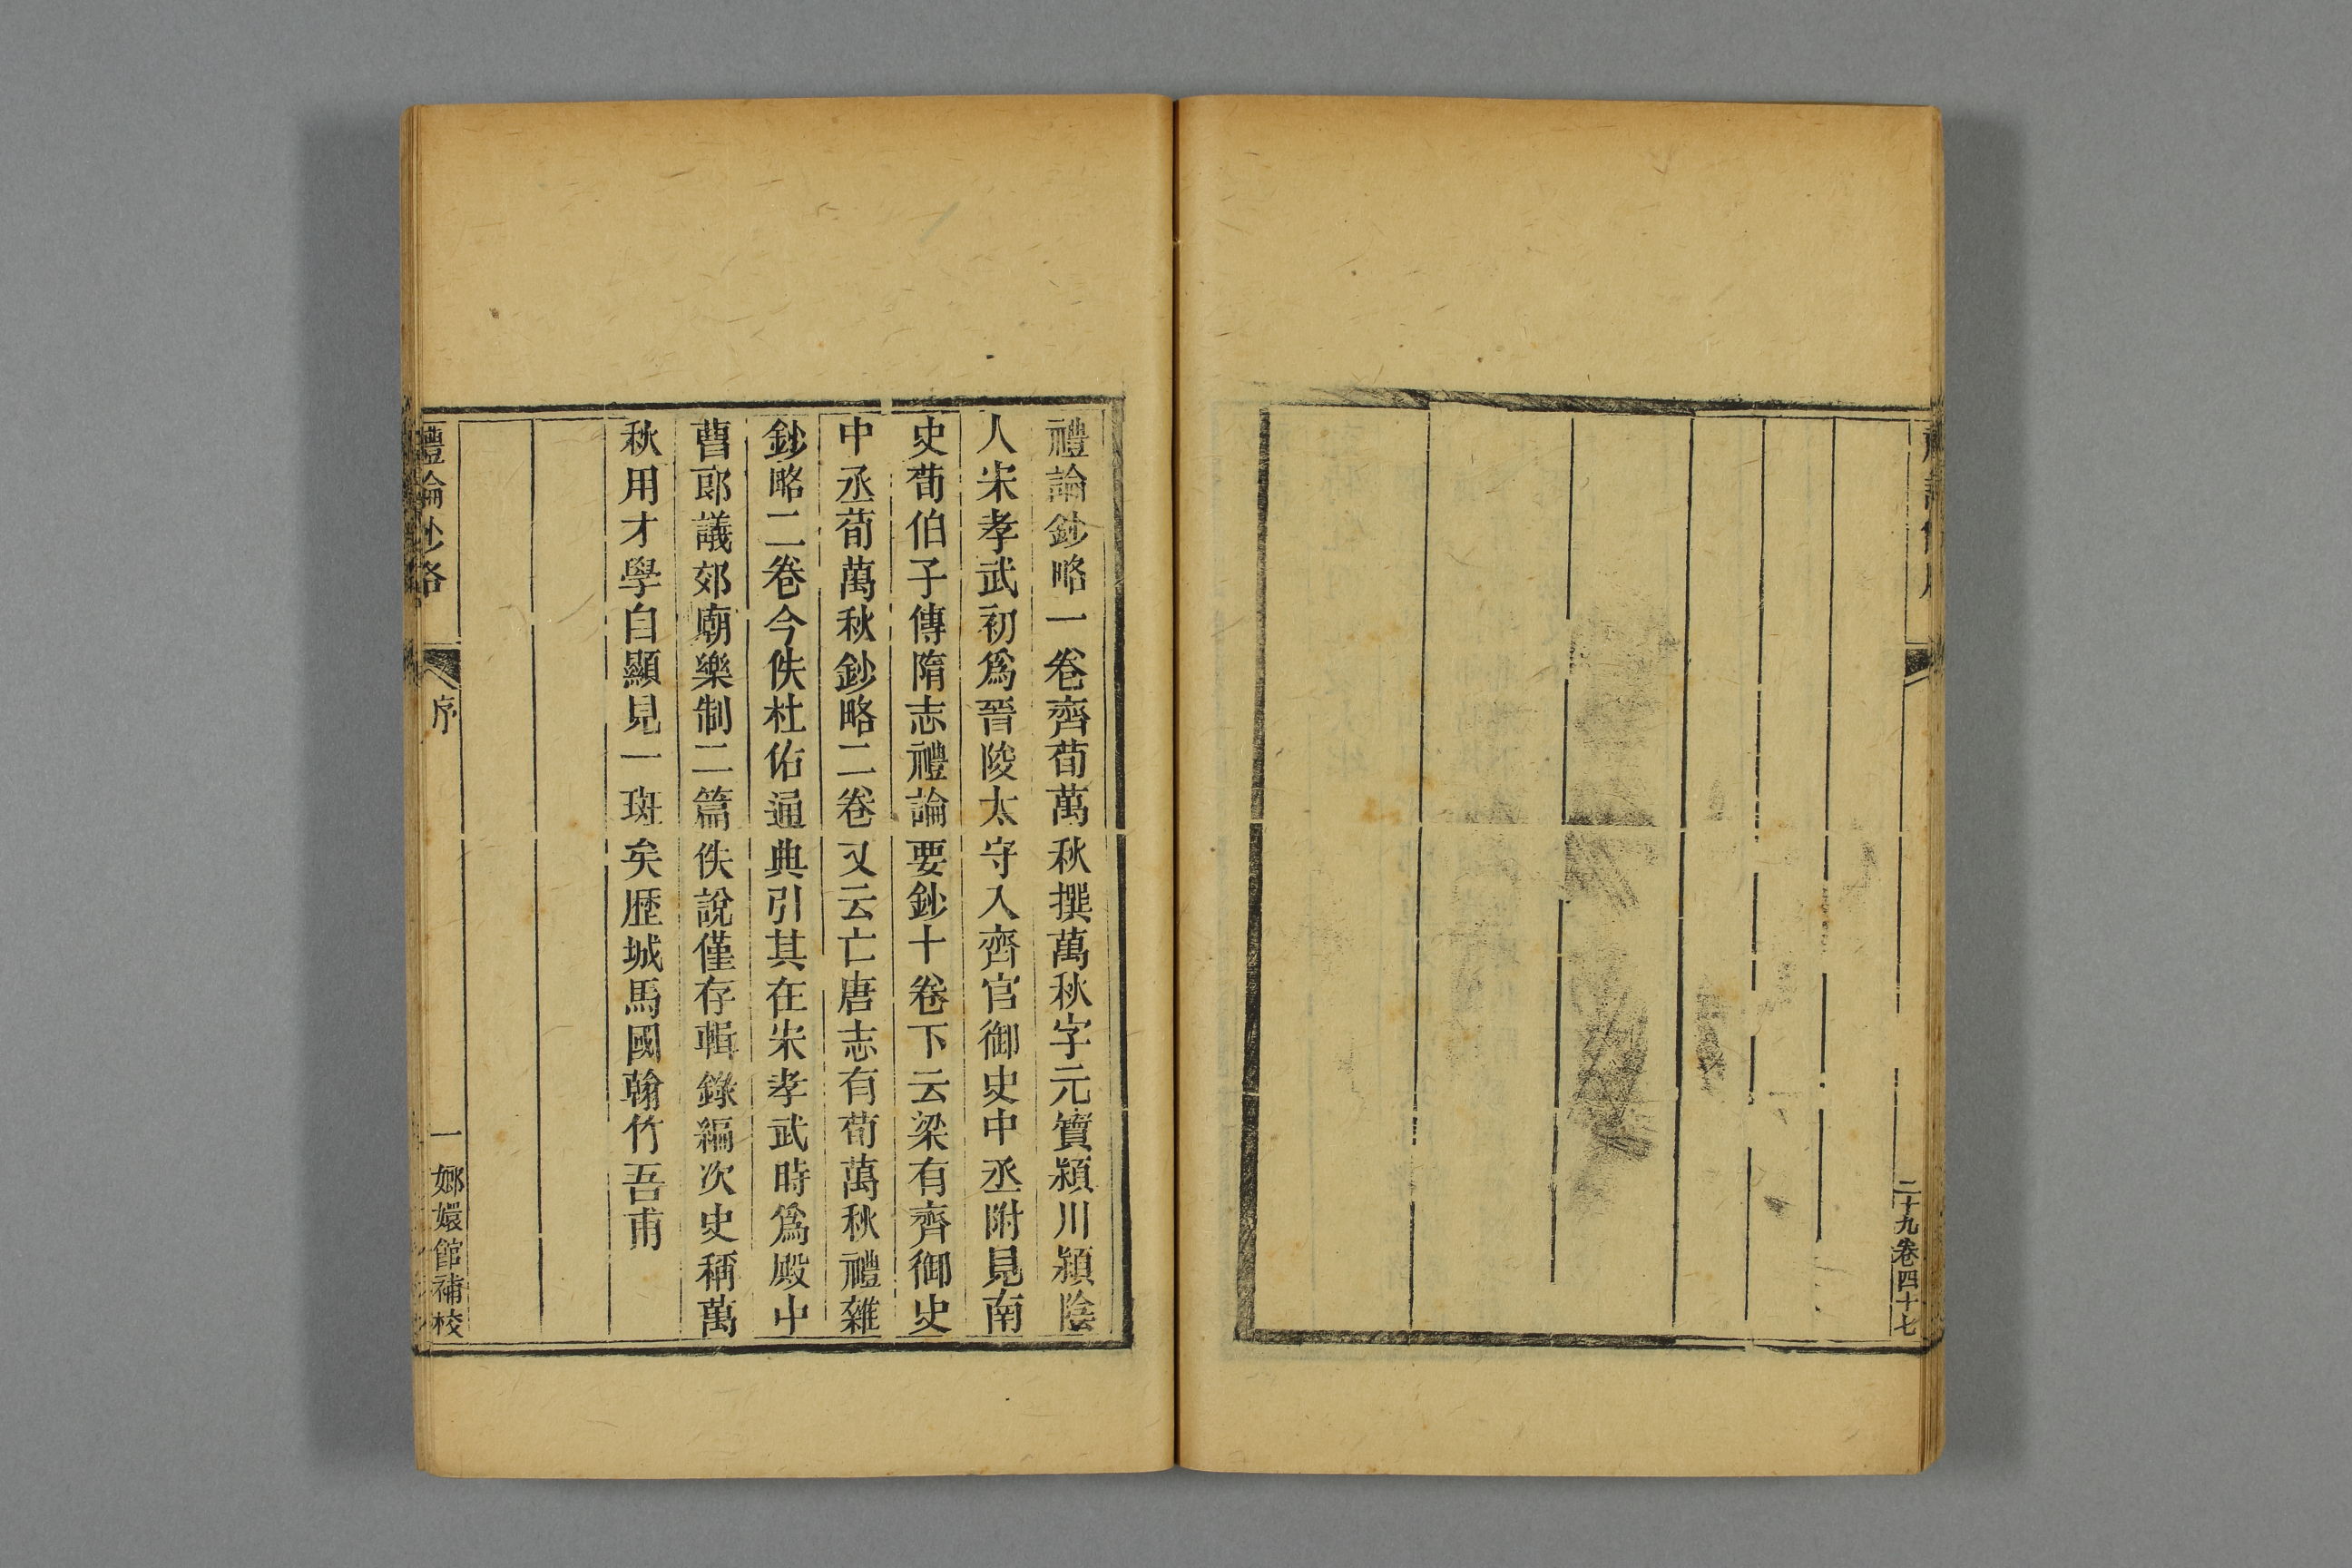 二十九卷四十七
禮論鈔略一卷齊荀萬秋撰萬秋字元寶潁川潁陰
人宋孝武初爲晉陵太守入齊官御史中丞附見南
史荀伯子傳隋志禮論要鈔十卷下云梁有齊御史
中丞荀萬秋鈔略二卷又云亡唐志有荀萬秋禮雜
鈔略二卷今佚杜佑通典引其在宋孝武時爲殿中
曹郎議郊廟樂制二篇佚說僅存輯錄編次史稱萬
秋用才學自顯見一斑矣歷城馬國翰竹吾甫
禮論鈔略
序
一
嫏嬛館補校